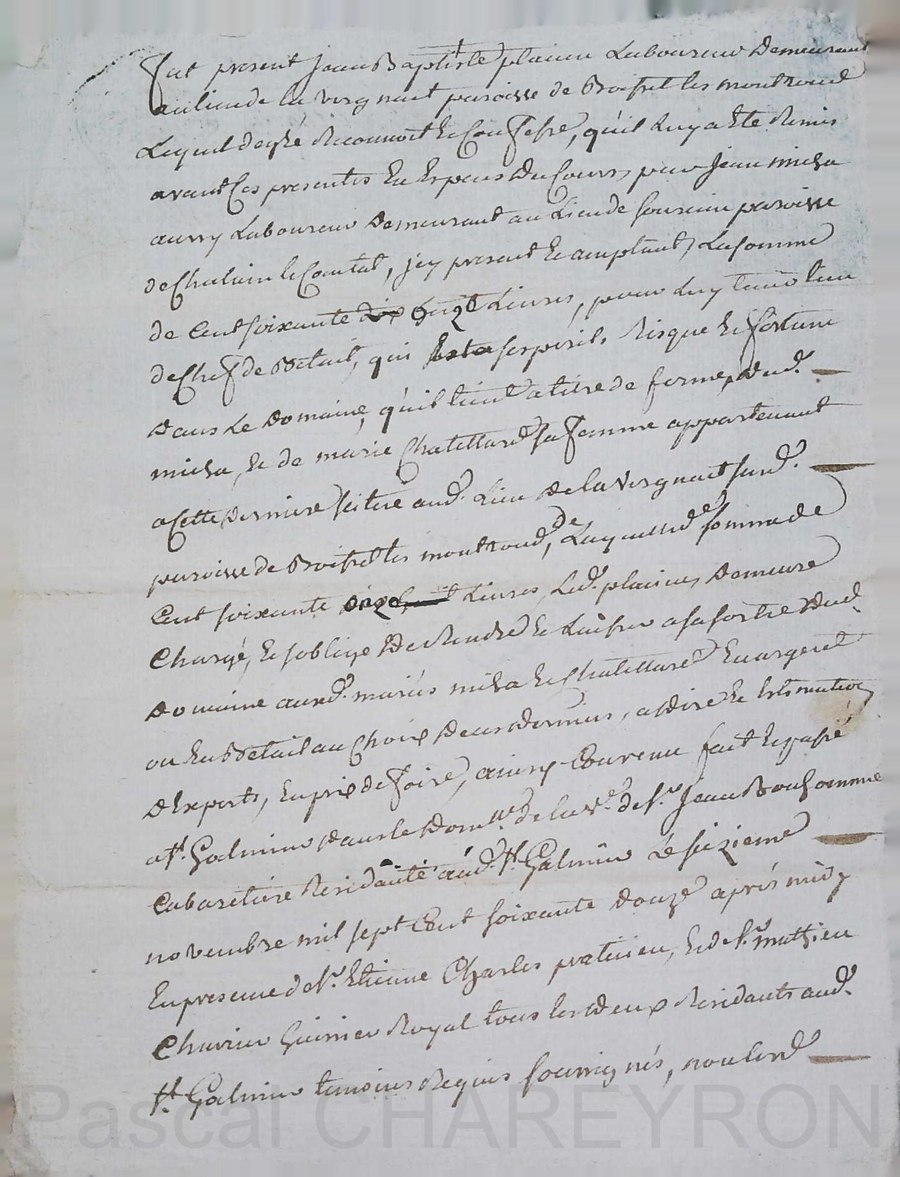 fut present Jean Baptiste plaieu Laboureur Demeurant
au lieu de la vergnait paroisse de Boisset les montrond
Lequel de gré Reconnoit Et Confesse, qu'il Luy a Eté Remis
avant Ces presentes En Especes Du Cours, par Jean miha
aurry Laboureur Demeurant au Lieu de paroisse
de Chalain le Comtal, jcy present Et aceptant, La somme
de Cent soixante onze Livres, pour Luy tenir lieu
de Chef de Bétail, qui Est a ses perils Risque Et fortune
Dans Le Domaine, qu'il tient a titre de ferme, Dud.
miha, Et de marie Chatellard sa femme appartenant
a Cette Derniere scitué aud. Lieu De la vergnait susd.
paroisse de Boisset les montrond, de Laquelle de somme de
Cent soixante onze Livres, Led. plaieu, Demeure
Chargé, Et soblige De Rendre Et Laisser a sa sortie Dud.
Domaine auxd. mariés miha Et Chatellard En argent
ou En Bétail au Choix De ces Derniers, a dire Et Estimation
D'Experts, En prix de foire, ainsy Convenu fait Et passé
a St. Galmier Dans le Dom.le de la ve. de Sr. Jean Bonhomme
Cabaretiere Residante aud. St. Galmier Le sizieme
novembre mil sept Cent soixante douze après midy
En presence de Sr. Etienne Charles praticien, Et de Sr. mathieu
Royal tous les Deux Residants aud.
St. Galmier temoins Requis soussignés, non Led.
Pascal CHAREYRON